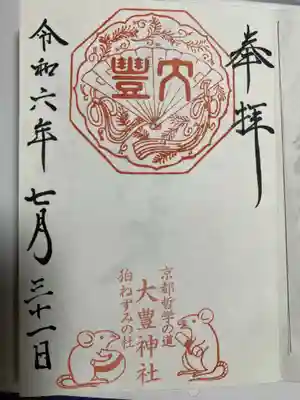 奉拝
大豊
京都哲学の道
大豊神社
狛ねずみの社
令和六年七月三十一日